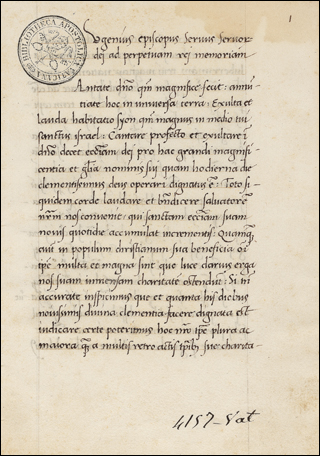 1
BIBLIOTHECA APOSTOLICA VATICANA
Eugenius episcopus servus servor
dej ad perpetuam rej memoriam
Antate dño qm magnifice fecit: annu-
tiate hoc in universa terra: Exulta et
lauda habitatio syon, qm magnus in medio tui
sanctus israel: Cantare profecto et exultare i
dño decet ecciam dej pro hac grandi magnifi-
centia et glia nominis sui quam hodierna die
clementissimus deus operari dignatus e: Toto si-
quidem corde laudare et bndicere salvatore
nrm nos convenit: qui sanctam ecciam suam
novis quotidie accumulat incrementis: Quamq
aut in populum christianum sua beneficia oi
tpe multa et magna sint que luce clarius erga
nos suam immensam charitate ostendut: Si tn
accurate inspicimus que et quanta his diebus
novissimis divina clementia facere dignata est
iudicare certe poterimus hoc nro tpe plura ac
maiora q a multis retro actis tpib sue charita-
4157-Vat